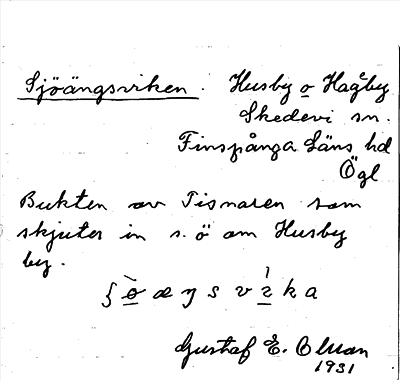 Sjöängsviken. Husby o Hageby
Skedevi sn.
Finspånga Läns hd
Ögl
Bukten av Tisnaren som
skjuter in s. ö om Husby
by.
Gustaf E. Olman
1931